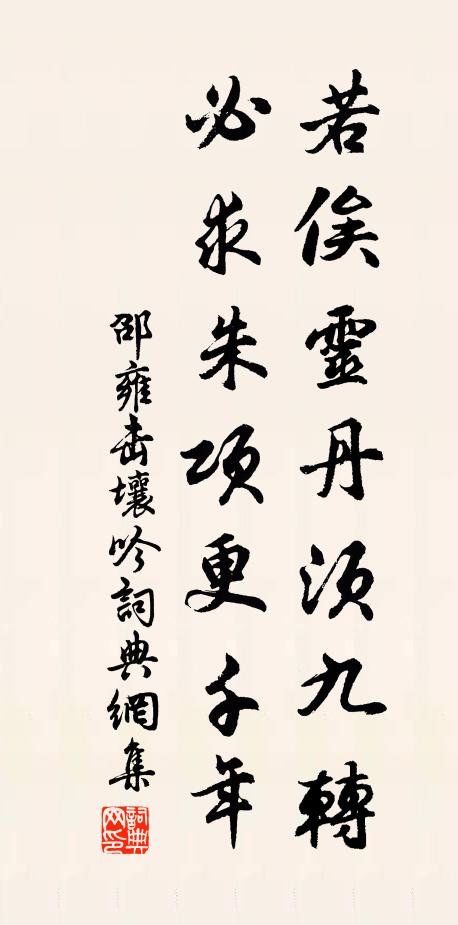 若俟靈丹須九轉
必求朱項更千年
邵雍击壤吟詞典網集
詞典网印